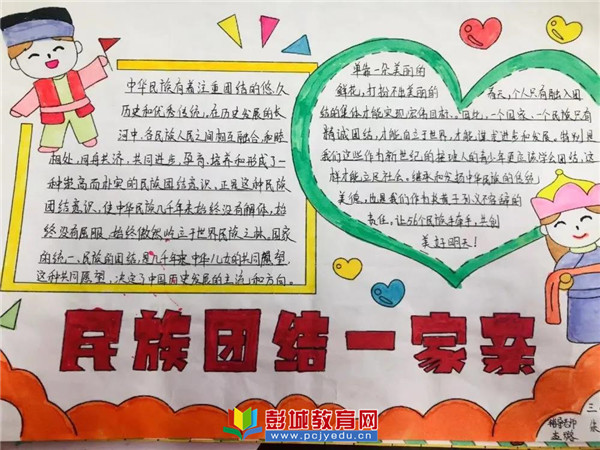 中华民族有着注重团结的悠久
历史和优秀传统,在历史发展的长
河中,各民族人民之间相互融合,和睦
相处,同舟共济,共同进步,孕育、培养和形成了一
种崇高而朴实的民族团结意识,正是这种民族
团结意识,使中华民族几千年来始终没有解体,始
终没有屈服,始终傲然屹立于世界民族之林。国家
的统一、民族的团结,是几千年来中华儿女的共同愿望,
这种共同愿望,决定了中国历史发展的主流和方向。
单靠一朵美丽的
鲜花,打扮不出美丽的
春天,个人只有融入团
结的集体才能实现宏伟目标。同地,一个国家、一个民族只有
精诚团结,才能自立于世界,才能谋求进步和发展。特别是
我们这些作为新世纪的接班人的青少年更应该学会团结,这
样才能立足社会。继承和发扬中华民族的优秀
美德,也是我们作为炎黄子孙义不容辞的
责任,让56个民族手牵手,共创
美好明天!
民族团结一家亲
三
辅导老师
孟璐
彭城教育网
www.pcjyedu.cn